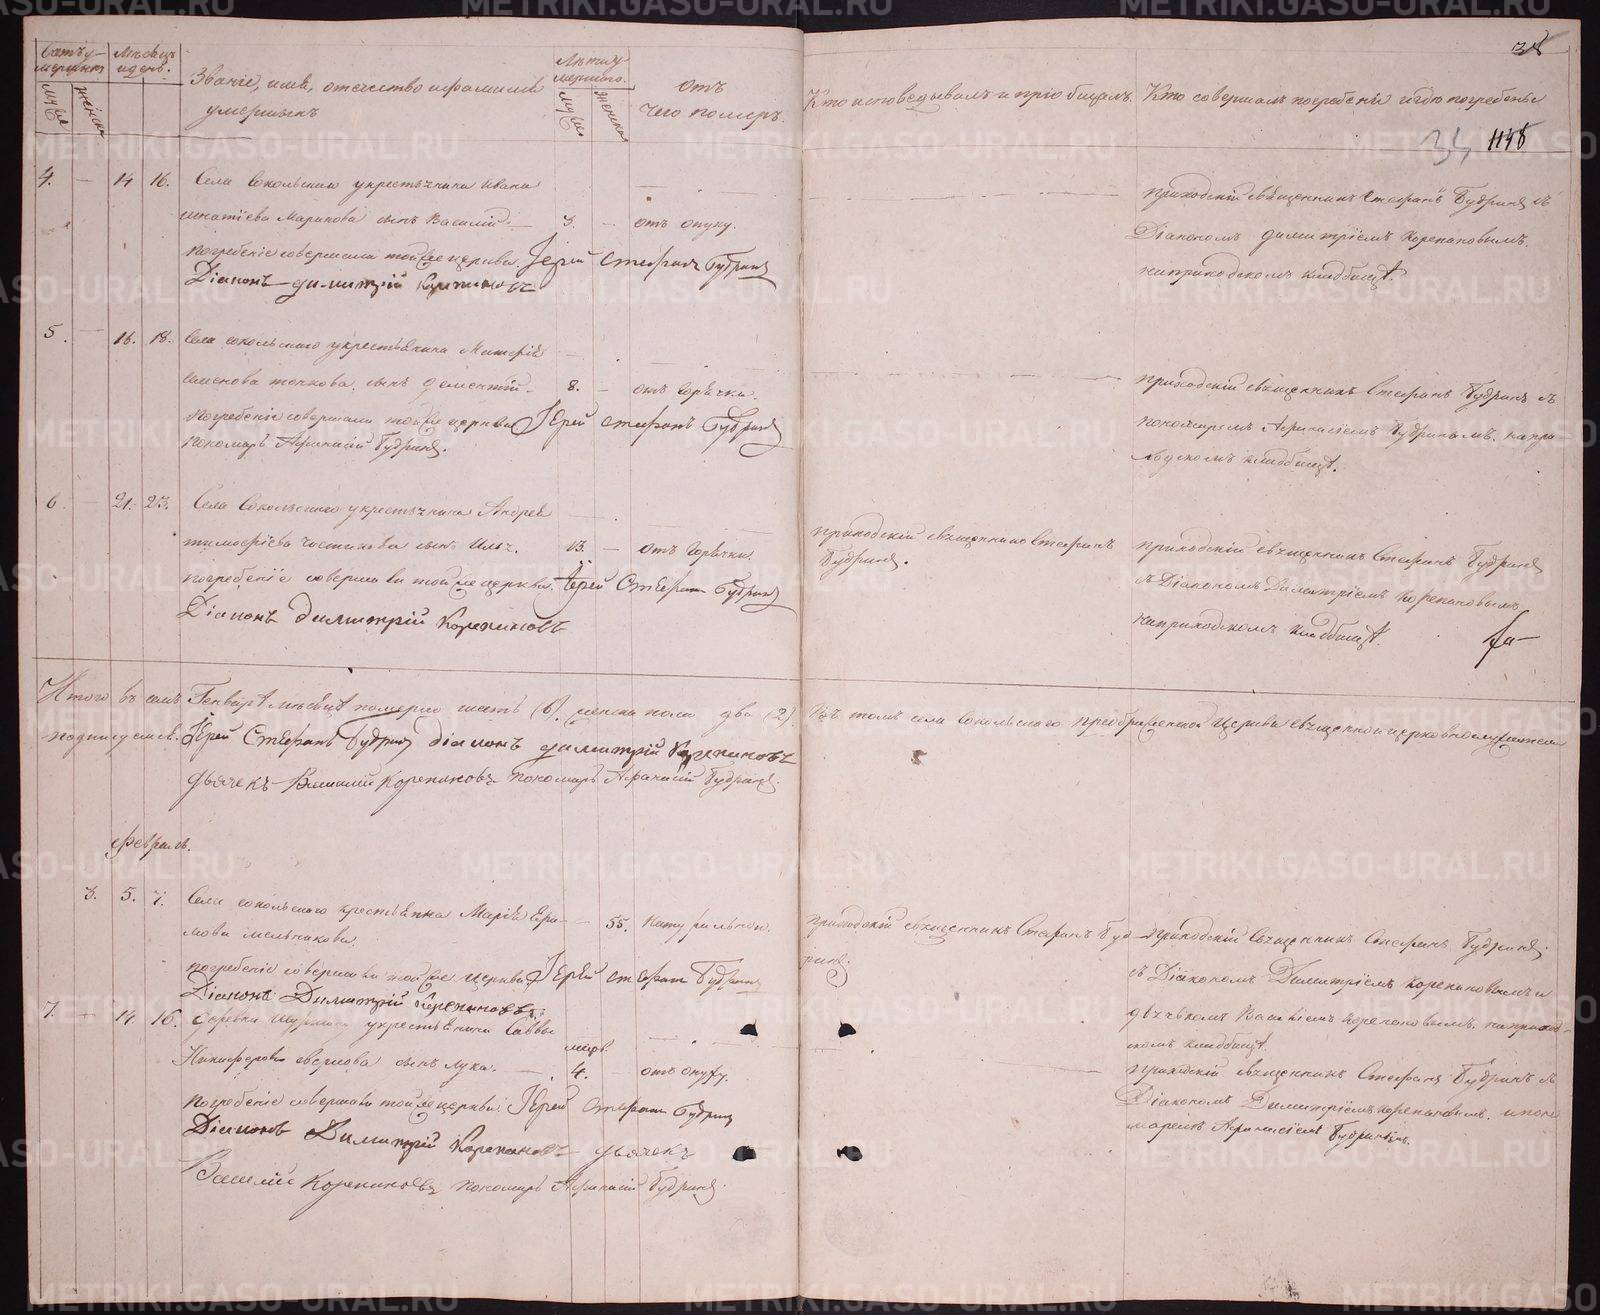 Счетъ умершихъ
Мѣсяцъ и день.
Званіе, имя, отечество и фамилія умершихъ
Лѣта умершаго.
отъ чего померъ.
Кто исповѣдывалъ и пріобщалъ.
Кто совершалъ погребеніе и гдѣ погребены
34 1148
4. — 14 16. Села Сокольскаго у крестьянина Ивана
Игнатіева Маринова сынъ Василій — 3. — отъ опуху.
погребеніе совершали той же церкви Іерей Стефанъ Будринъ
Діаконъ Димитрій Корепановъ
приходскій священникъ Стефанъ Будринъ съ
Діакономъ Димитріемъ Корепановымъ.
на приходскомъ кладбищѣ.
5. — 16. 18. Села Сокольскаго у крестьянина
Семенова сынъ Дементій — 8. — отъ горячки.
погребеніе совершали той же церкви Іерей Стефанъ Будринъ
пономарь Афанасій Будринъ.
приходскій священникъ Стефанъ Будринъ съ
пономаремъ Афанасіемъ Будринымъ. на при-
ходскомъ кладбищѣ.
6 — 21. 23. Села Сокольскаго у крестьянина Андрея
Тимофѣева сынъ 13. — отъ горячки.
погребеніе совершали той же церкви. Іерей Стефанъ Будринъ
Діаконъ Димитрій Корепановъ
приходскій священникъ Стефанъ
Будринъ.
приходскій священникъ Стефанъ Будринъ
съ Діакономъ Димитріемъ Корепановымъ
на приходскомъ кладбищѣ.
Итого въ семъ Генварѣ мѣсяцѣ померло шесть (6). женска пола два (2). Въ томъ села Сокольскаго Преображенской церкви священноцерковнослужители
подписуемся. Іерей Стефанъ Будринъ Діаконъ Димитрій Корепановъ
дьячекъ Василій Корепановъ пономарь Афанасій Будринъ.
Февраль.
3. 5. 7. Села Сокольскаго крестьянка Марія Ефи-
мова Мельникова. — 55. натуральной.
погребеніе совершали той же церкви Іерей Стефанъ Будринъ
Діаконъ Димитрій Корепановъ
приходскій священникъ Стефанъ Буд-
ринъ.
приходскій священникъ Стефанъ Будринъ
съ Діакономъ Димитріемъ Корепановымъ и
дьячкомъ Василіемъ Корепановымъ. на приход-
скомъ кладбищѣ.
7. — 14 16. деревни у крестьянина Саввы
Никифорова сынъ Лука. — 4. — отъ опуху.
погребеніе совершали той же церкви. Іерей Стефанъ Будринъ
Діаконъ Димитрій Корепановъ дьячекъ
Василій Корепановъ пономарь Афанасій Будринъ.
приходскій священникъ Стефанъ Будринъ съ
Діакономъ Димитріемъ Корепановымъ. и поно-
маремъ Афанасіемъ Будринымъ.
METRIKI.GASO-URAL.RU